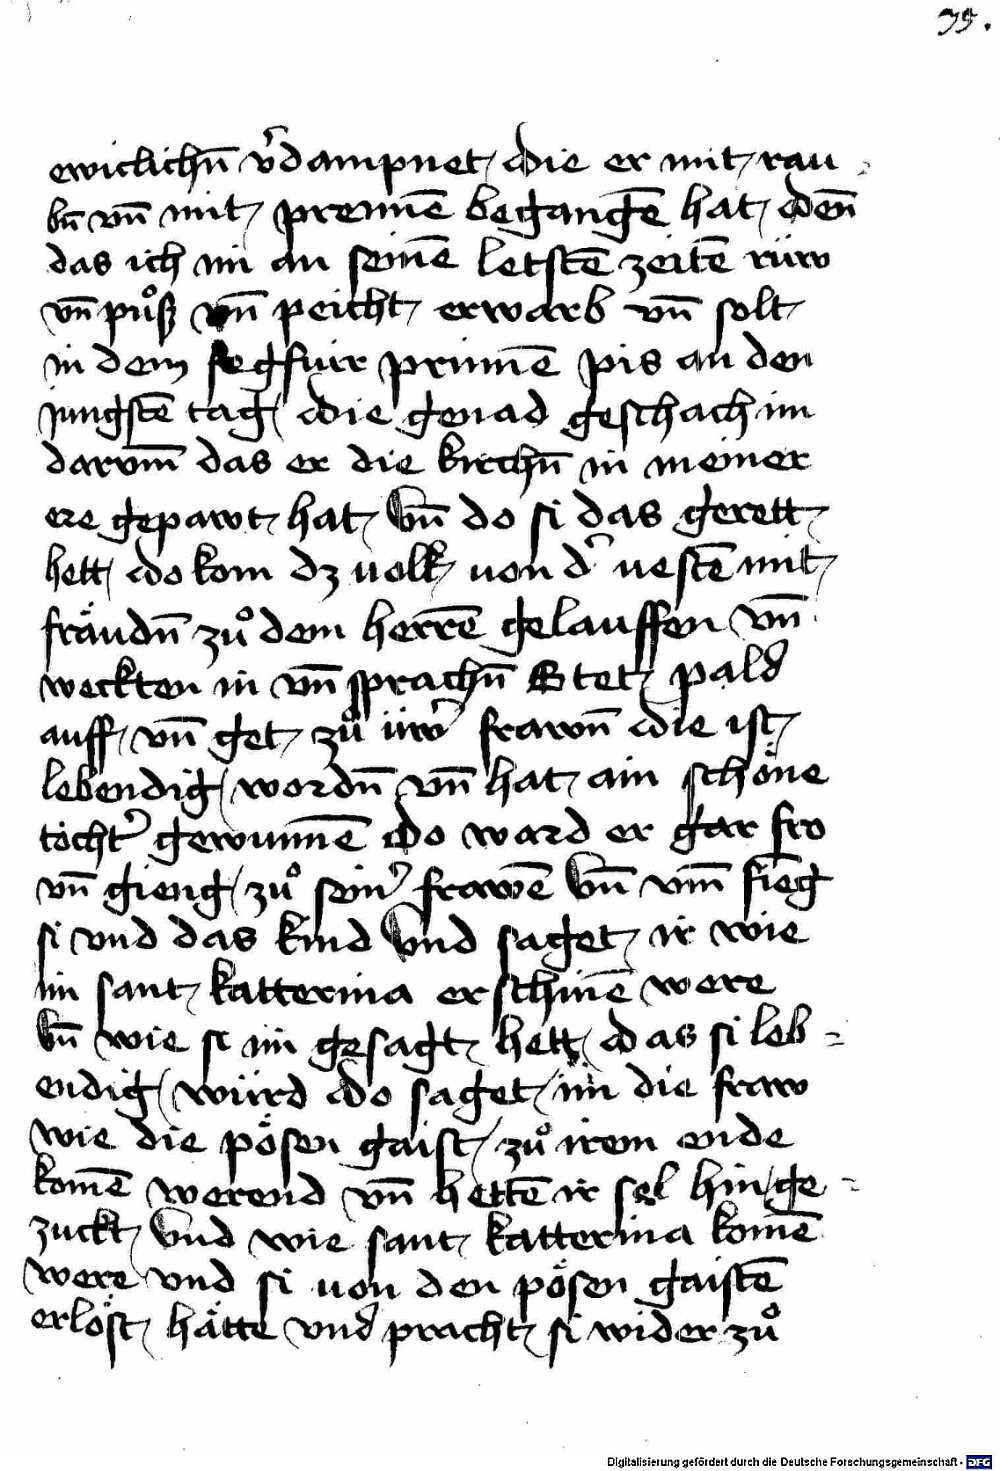 75.
ewiclichn̄ v᷑dampnet die er mit rau
bn̄ vn̄ mit prennē begangē hat den̄
das ich im an seinē letstē zeitē rüw
vn̄ půß vn̄ peicht erwarb vn̄ solt
in dem fegfuir prinnē pis an den
jungstē tag die genad geschach im
darvm̄ das er die kirchn̄ in meiner
ere gepawt hat Vn̄ do si das gerett
hett do kom dz uolk uon d᷑ uestē mit
fräudn̄ zů dem herrē gelauffen vn̄
weckten in vn̄ sprachn̄ Stet pald
auff vn̄ get zů üw᷑ frawn̄ die ist
lebendig wordn̄ vn̄ hat ain schöne
tocht᷑ gewunnē Do ward er gar fro
vn̄ gieng zů sein᷑ frawē Vn̄ vm̄ fieg
si vnd das kind Vnd saget ir wie
im sant katterina erschinē were
Vn̄ wie si im gesagt hett das si leb=
endig würd do saget im die fraw
wie die pösen gaist zů irem ende
komē werend vn̄ hettē ir sel hin ge=
zuckt Vnd wie sant katterina komē
were vnd si uon den pösen gaistē
erlöst hätte vnd pracht si wider zů
Digitalisierung gefördert durch die Deutsche Forschungsgemeinschaft - DFG